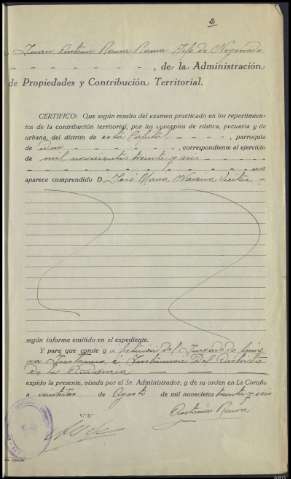 Juan Antonio Reana Reana Jefe de Negociado
- - - - - - - - -, de la Administración
de Propiedades y Contribución Territorial.
CERTIFICO: Que según resulta del examen practicado en los repartimien-
tos de la contribución territorial, por los conceptos de rústica, pecuaria y de
urbana, del distrito de esta Capital - - - - - , parroquia
de - - - - - - , correspondiente al ejercicio
de mil novecientos treinta y seis - - - -
- - - - - - - - no
aparece comprendido D. José
según informe emitido en el expediente.
Y para que conste y a petición del Juzgado de
Instancia e Instrucción del Distrito
de la Audiencia
expido la presente, visada por el Sr. Administrador, y de su orden en La Coruña
a de Agosto de mil novecientos treinta y seis
V.º B.º
Antonio